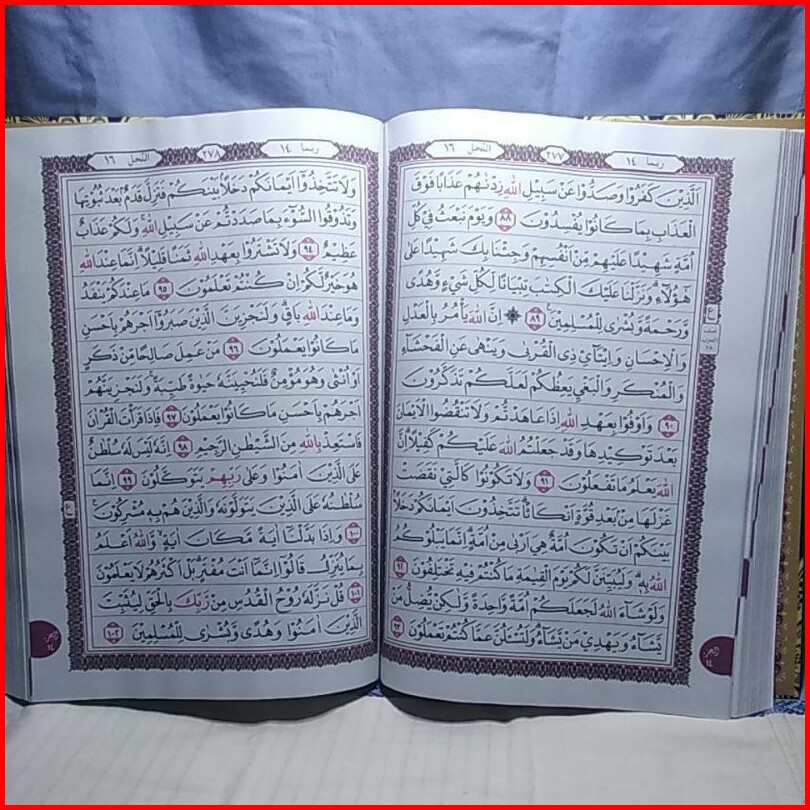 ربما ١٤
٢٧٧
النحل ١٦
اَلَّذِيْنَ كَفَرُوْا وَصَدُّوْا عَنْ سَبِيْلِ اللّٰهِ زِدْنٰهُمْ عَذَابًا فَوْقَ
الْعَذَابِ بِمَا كَانُوْا يُفْسِدُوْنَ ٨٨ وَيَوْمَ نَبْعَثُ فِيْ كُلِّ
اُمَّةٍ شَهِيْدًا عَلَيْهِمْ مِّنْ اَنْفُسِهِمْ وَجِئْنَا بِكَ شَهِيْدًا عَلٰى
هٰٓؤُلَاۤءِۗ وَنَزَّلْنَا عَلَيْكَ الْكِتٰبَ تِبْيَانًا لِّكُلِّ شَيْءٍ وَّهُدًى
وَّرَحْمَةً وَّبُشْرٰى لِلْمُسْلِمِيْنَ ٨٩ ۞ اِنَّ اللّٰهَ يَأْمُرُ بِالْعَدْلِ
وَالْاِحْسَانِ وَاِيْتَاۤئِ ذِى الْقُرْبٰى وَيَنْهٰى عَنِ الْفَحْشَاۤءِ
وَالْمُنْكَرِ وَالْبَغْيِ يَعِظُكُمْ لَعَلَّكُمْ تَذَكَّرُوْنَ
٩٠ وَاَوْفُوْا بِعَهْدِ اللّٰهِ اِذَا عَاهَدْتُّمْ وَلَا تَنْقُضُوا الْاَيْمَانَ
بَعْدَ تَوْكِيْدِهَا وَقَدْ جَعَلْتُمُ اللّٰهَ عَلَيْكُمْ كَفِيْلًاۗ اِنَّ
اللّٰهَ يَعْلَمُ مَا تَفْعَلُوْنَ ٩١ وَلَا تَكُوْنُوْا كَالَّتِيْ نَقَضَتْ
غَزْلَهَا مِنْۢ بَعْدِ قُوَّةٍ اَنْكَاثًاۗ تَتَّخِذُوْنَ اَيْمَانَكُمْ دَخَلًاۢ
بَيْنَكُمْ اَنْ تَكُوْنَ اُمَّةٌ هِيَ اَرْبٰى مِنْ اُمَّةٍۗ اِنَّمَا يَبْلُوْكُمُ
اللّٰهُ بِهٖۗ وَلَيُبَيِّنَنَّ لَكُمْ يَوْمَ الْقِيٰمَةِ مَا كُنْتُمْ فِيْهِ تَخْتَلِفُوْنَ ٩٢
وَلَوْ شَاۤءَ اللّٰهُ لَجَعَلَكُمْ اُمَّةً وَّاحِدَةً وَّلٰكِنْ يُّضِلُّ مَنْ
يَّشَاۤءُ وَيَهْدِيْ مَنْ يَّشَاۤءُۗ وَلَتُسْـَٔلُنَّ عَمَّا كُنْتُمْ تَعْمَلُوْنَ ٩٣
الجزء
١٤
ربما ١٤
٢٧٨
النحل ١٦
وَلَا تَتَّخِذُوْٓا اَيْمَانَكُمْ دَخَلًاۢ بَيْنَكُمْ فَتَزِلَّ قَدَمٌۢ بَعْدَ ثُبُوْتِهَا
وَتَذُوْقُوا السُّوْۤءَ بِمَا صَدَدْتُّمْ عَنْ سَبِيْلِ اللّٰهِۚ وَلَكُمْ عَذَابٌ
عَظِيْمٌ ٩٤ وَلَا تَشْتَرُوْا بِعَهْدِ اللّٰهِ ثَمَنًا قَلِيْلًاۗ اِنَّمَا عِنْدَ اللّٰهِ
هُوَ خَيْرٌ لَّكُمْ اِنْ كُنْتُمْ تَعْلَمُوْنَ ٩٥ مَا عِنْدَكُمْ يَنْفَدُ
وَمَا عِنْدَ اللّٰهِ بَاقٍۗ وَلَنَجْزِيَنَّ الَّذِيْنَ صَبَرُوْٓا اَجْرَهُمْ بِاَحْسَنِ
مَا كَانُوْا يَعْمَلُوْنَ ٩٦ مَنْ عَمِلَ صَالِحًا مِّنْ ذَكَرٍ
اَوْ اُنْثٰى وَهُوَ مُؤْمِنٌ فَلَنُحْيِيَنَّهٗ حَيٰوةً طَيِّبَةًۚ وَلَنَجْزِيَنَّهُمْ
اَجْرَهُمْ بِاَحْسَنِ مَا كَانُوْا يَعْمَلُوْنَ ٩٧ فَاِذَا قَرَأْتَ الْقُرْاٰنَ
فَاسْتَعِذْ بِاللّٰهِ مِنَ الشَّيْطٰنِ الرَّجِيْمِ ٩٨ اِنَّهٗ لَيْسَ لَهٗ سُلْطٰنٌ
عَلَى الَّذِيْنَ اٰمَنُوْا وَعَلٰى رَبِّهِمْ يَتَوَكَّلُوْنَ ٩٩ اِنَّمَا
سُلْطٰنُهٗ عَلَى الَّذِيْنَ يَتَوَلَّوْنَهٗ وَالَّذِيْنَ هُمْ بِهٖ مُشْرِكُوْنَ
١٠٠ وَاِذَا بَدَّلْنَآ اٰيَةً مَّكَانَ اٰيَةٍۙ وَّاللّٰهُ اَعْلَمُ
بِمَا يُنَزِّلُ قَالُوْٓا اِنَّمَآ اَنْتَ مُفْتَرٍۗ بَلْ اَكْثَرُهُمْ لَا يَعْلَمُوْنَ
١٠١ قُلْ نَزَّلَهٗ رُوْحُ الْقُدُسِ مِنْ رَّبِّكَ بِالْحَقِّ لِيُثَبِّتَ
الَّذِيْنَ اٰمَنُوْا وَهُدًى وَّبُشْرٰى لِلْمُسْلِمِيْنَ ١٠٢
الجزء
١٤